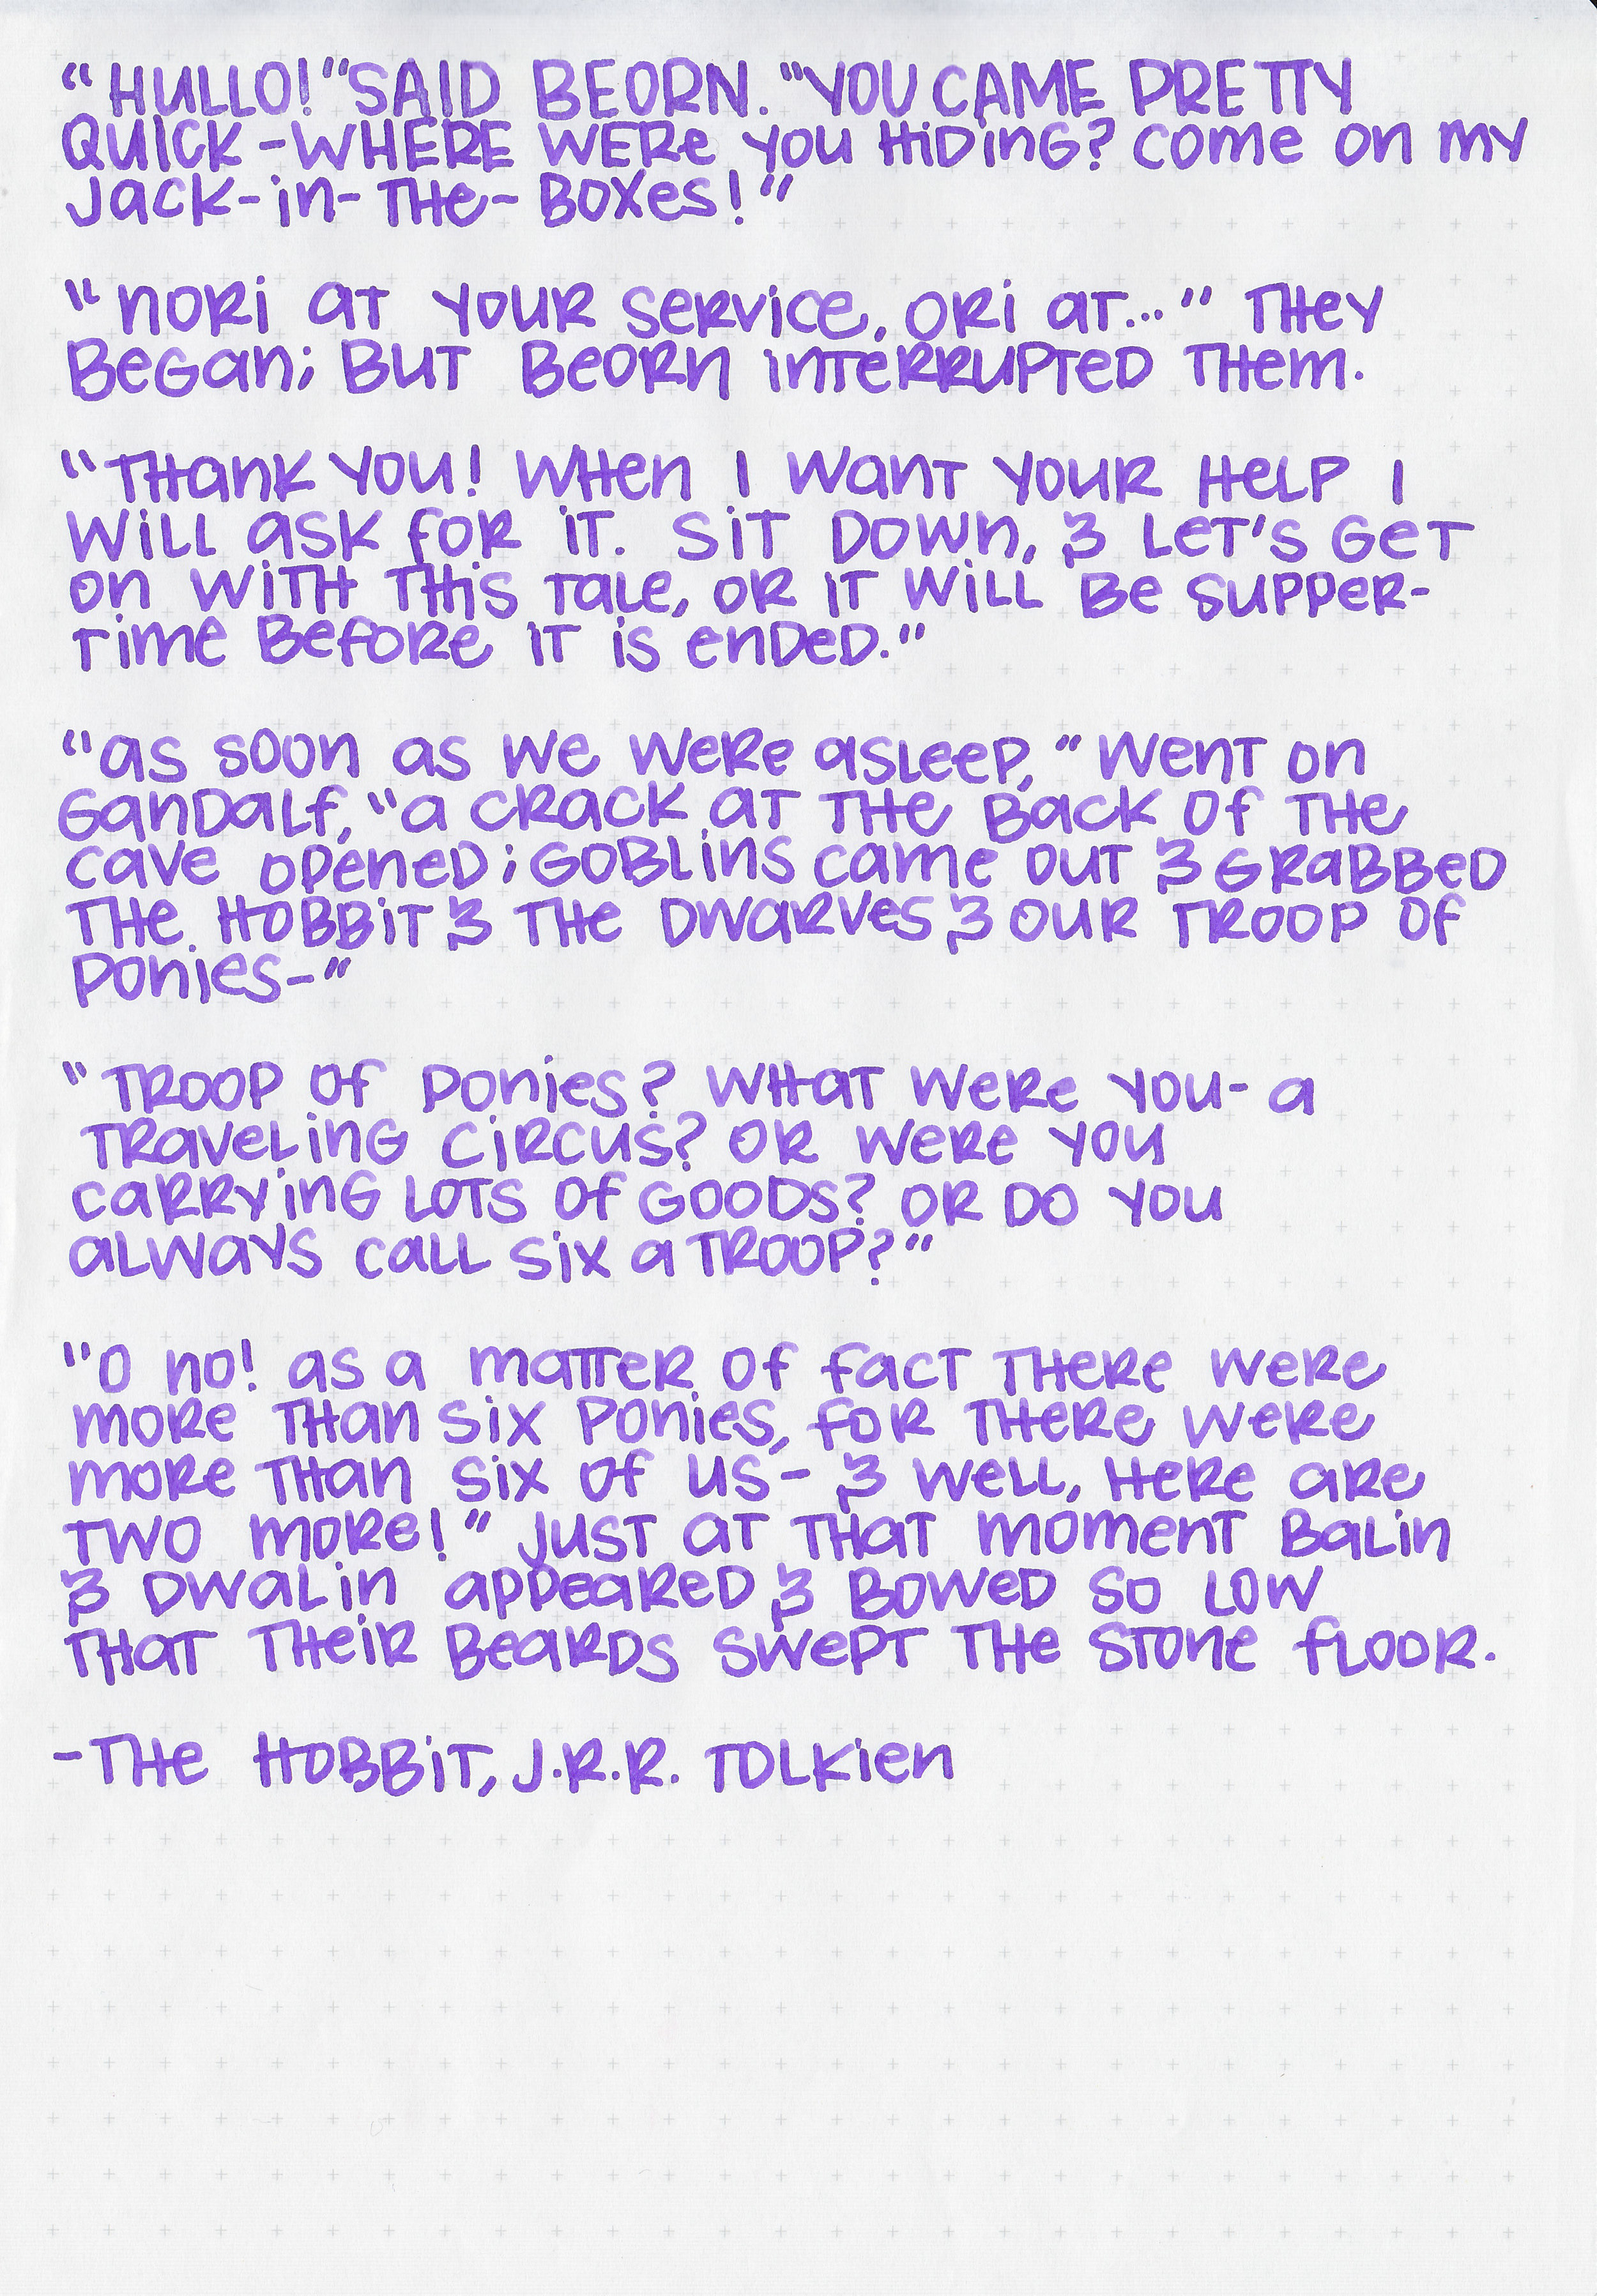 "Hullo!" said Beorn. "You came pretty
quick - where were you hiding? Come on my
jack-in-the-boxes!"
"Nori at your service, Ori at..." they
began; but Beorn interrupted them.
"Thank you! When I want your help I
will ask for it. Sit down, & let's get
on with this tale, or it will be supper-
time before it is ended."
"As soon as we were asleep," went on
Gandalf, "a crack at the back of the
cave opened; goblins came out & grabbed
the hobbit & the dwarves & our troop of
ponies-"
"Troop of ponies? What were you- a
traveling circus? Or were you
carrying lots of goods? Or do you
always call six a troop?"
"O no! As a matter of fact there were
more than six ponies, for there were
more than six of us- & well, here are
two more!" Just at that moment Balin
& Dwalin appeared & bowed so low
that their beards swept the stone floor.
-The Hobbit, J.R.R. Tolkien